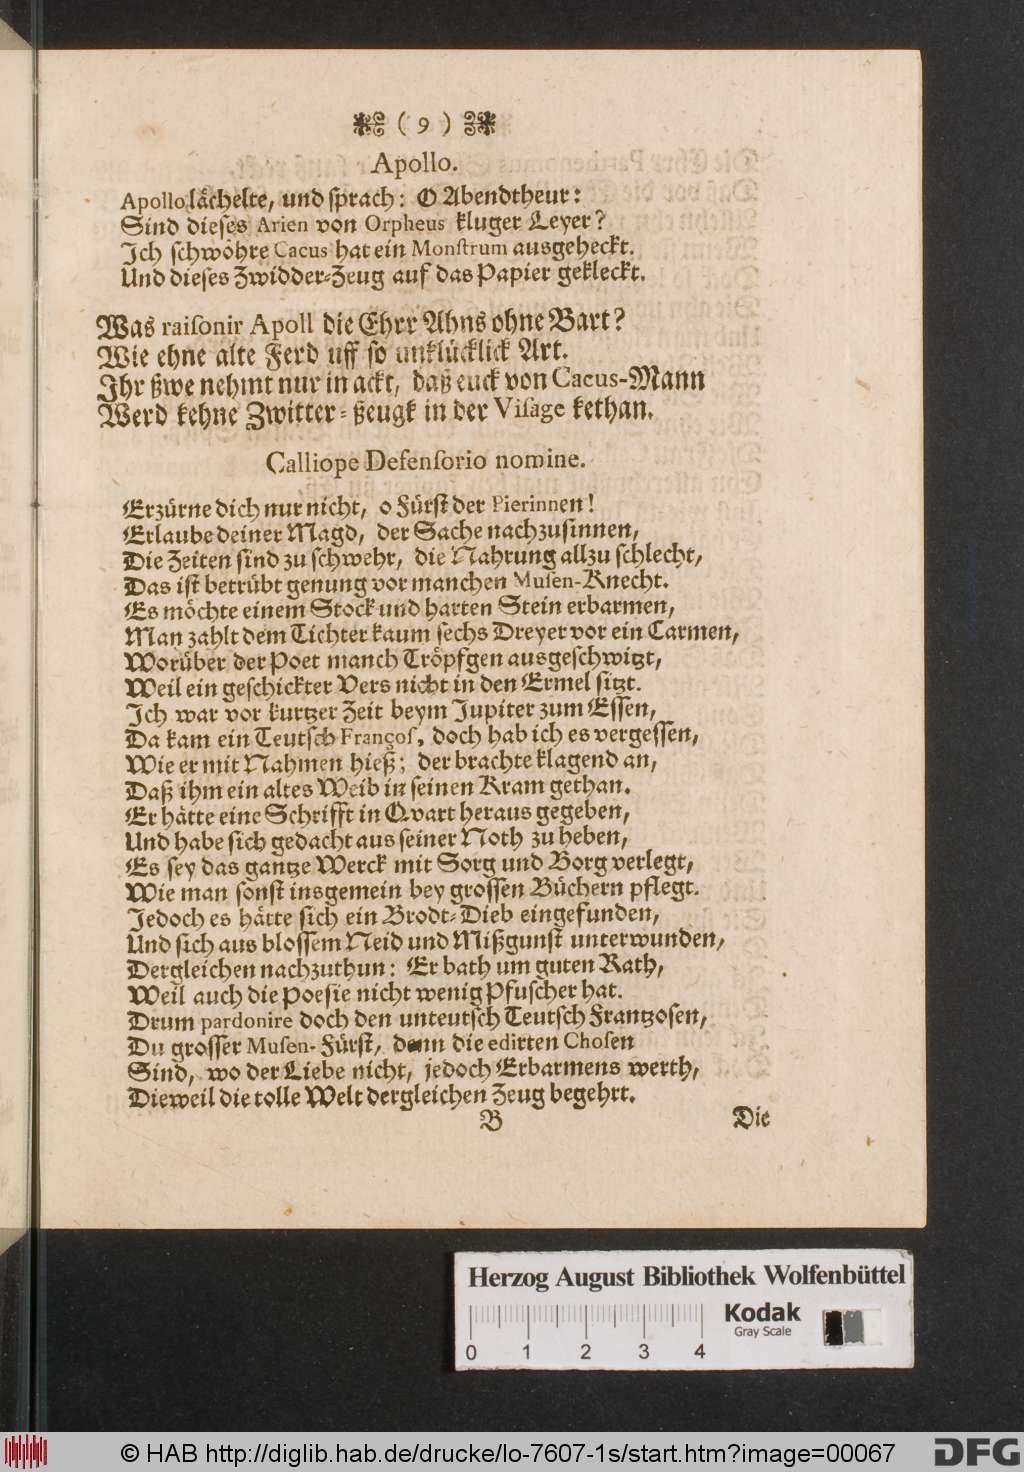 ( 9 )
Apollo.
Apollo lächelte, und sprach: O Abendtheur:
Sind dieses Arien von Orpheus kluger Leyer?
Ich schwöhre Cacus hat ein Monstrum ausgeheckt.
Und dieses Zwidder-Zeug auf das Papier gekleckt.
Was raisonir Apoll die Ehrr Ahns ohne Bart?
Wie ehne alte Ferd uff so unklücklick Art.
Ihr ßwe nehmt nur in ackt, daß euck von Cacus-Mann
Werd kehne Zwitter-ßeugk in der Visage kethan.
Calliope Defensorio nomine.
Erzürne dich nur nicht, o Fürst der Pierinnen!
Erlaube deiner Magd, der Sache nachzusinnen,
Die Zeiten sind zu schwehr, die Nahrung allzu schlecht,
Das ist betrübt genung vor manchen Musen-Knecht.
Es möchte einem Stock und harten Stein erbarmen,
Man zahlt dem Tichter kaum sechs Dreyer vor ein Carmen,
Worüber der Poet manch Tröpfgen ausgeschwitzt,
Weil ein geschickter Vers nicht in den Ermel sitzt.
Ich war vor kurtzer Zeit beym Jupiter zum Essen,
Da kam ein Teutsch François, doch hab ich es vergessen,
Wie er mit Nahmen hieß; der brachte klagend an,
Daß ihm ein altes Weib in seinen Kram gethan.
Er hätte eine Schrifft in Qvart heraus gegeben,
Und habe sich gedacht aus seiner Noth zu heben,
Es sey das gantze Werck mit Sorg und Borg verlegt,
Wie man sonst insgemein bey grossen Büchern pflegt.
Jedoch es hätte sich ein Brodt-Dieb eingefunden,
Und sich aus blossem Neid und Mißgunst unterwunden,
Dergleichen nachzuthun: Er bath um guten Rath,
Weil auch die Poesie nicht wenig Pfuscher hat.
Drum pardonire doch den unteutsch Teutsch Frantzosen,
Du grosser Musen-Fürst, denn die edirten Chosen
Sind, wo der Liebe nicht, jedoch Erbarmens werth,
Dieweil die tolle Welt dergleichen Zeug begehrt.
B Die
Herzog August Bibliothek Wolfenbüttel
Kodak
Gray Scale
0 1 2 3 4
© HAB http://diglib.hab.de/drucke/lo-7607-1s/start.htm?image=00067
DFG